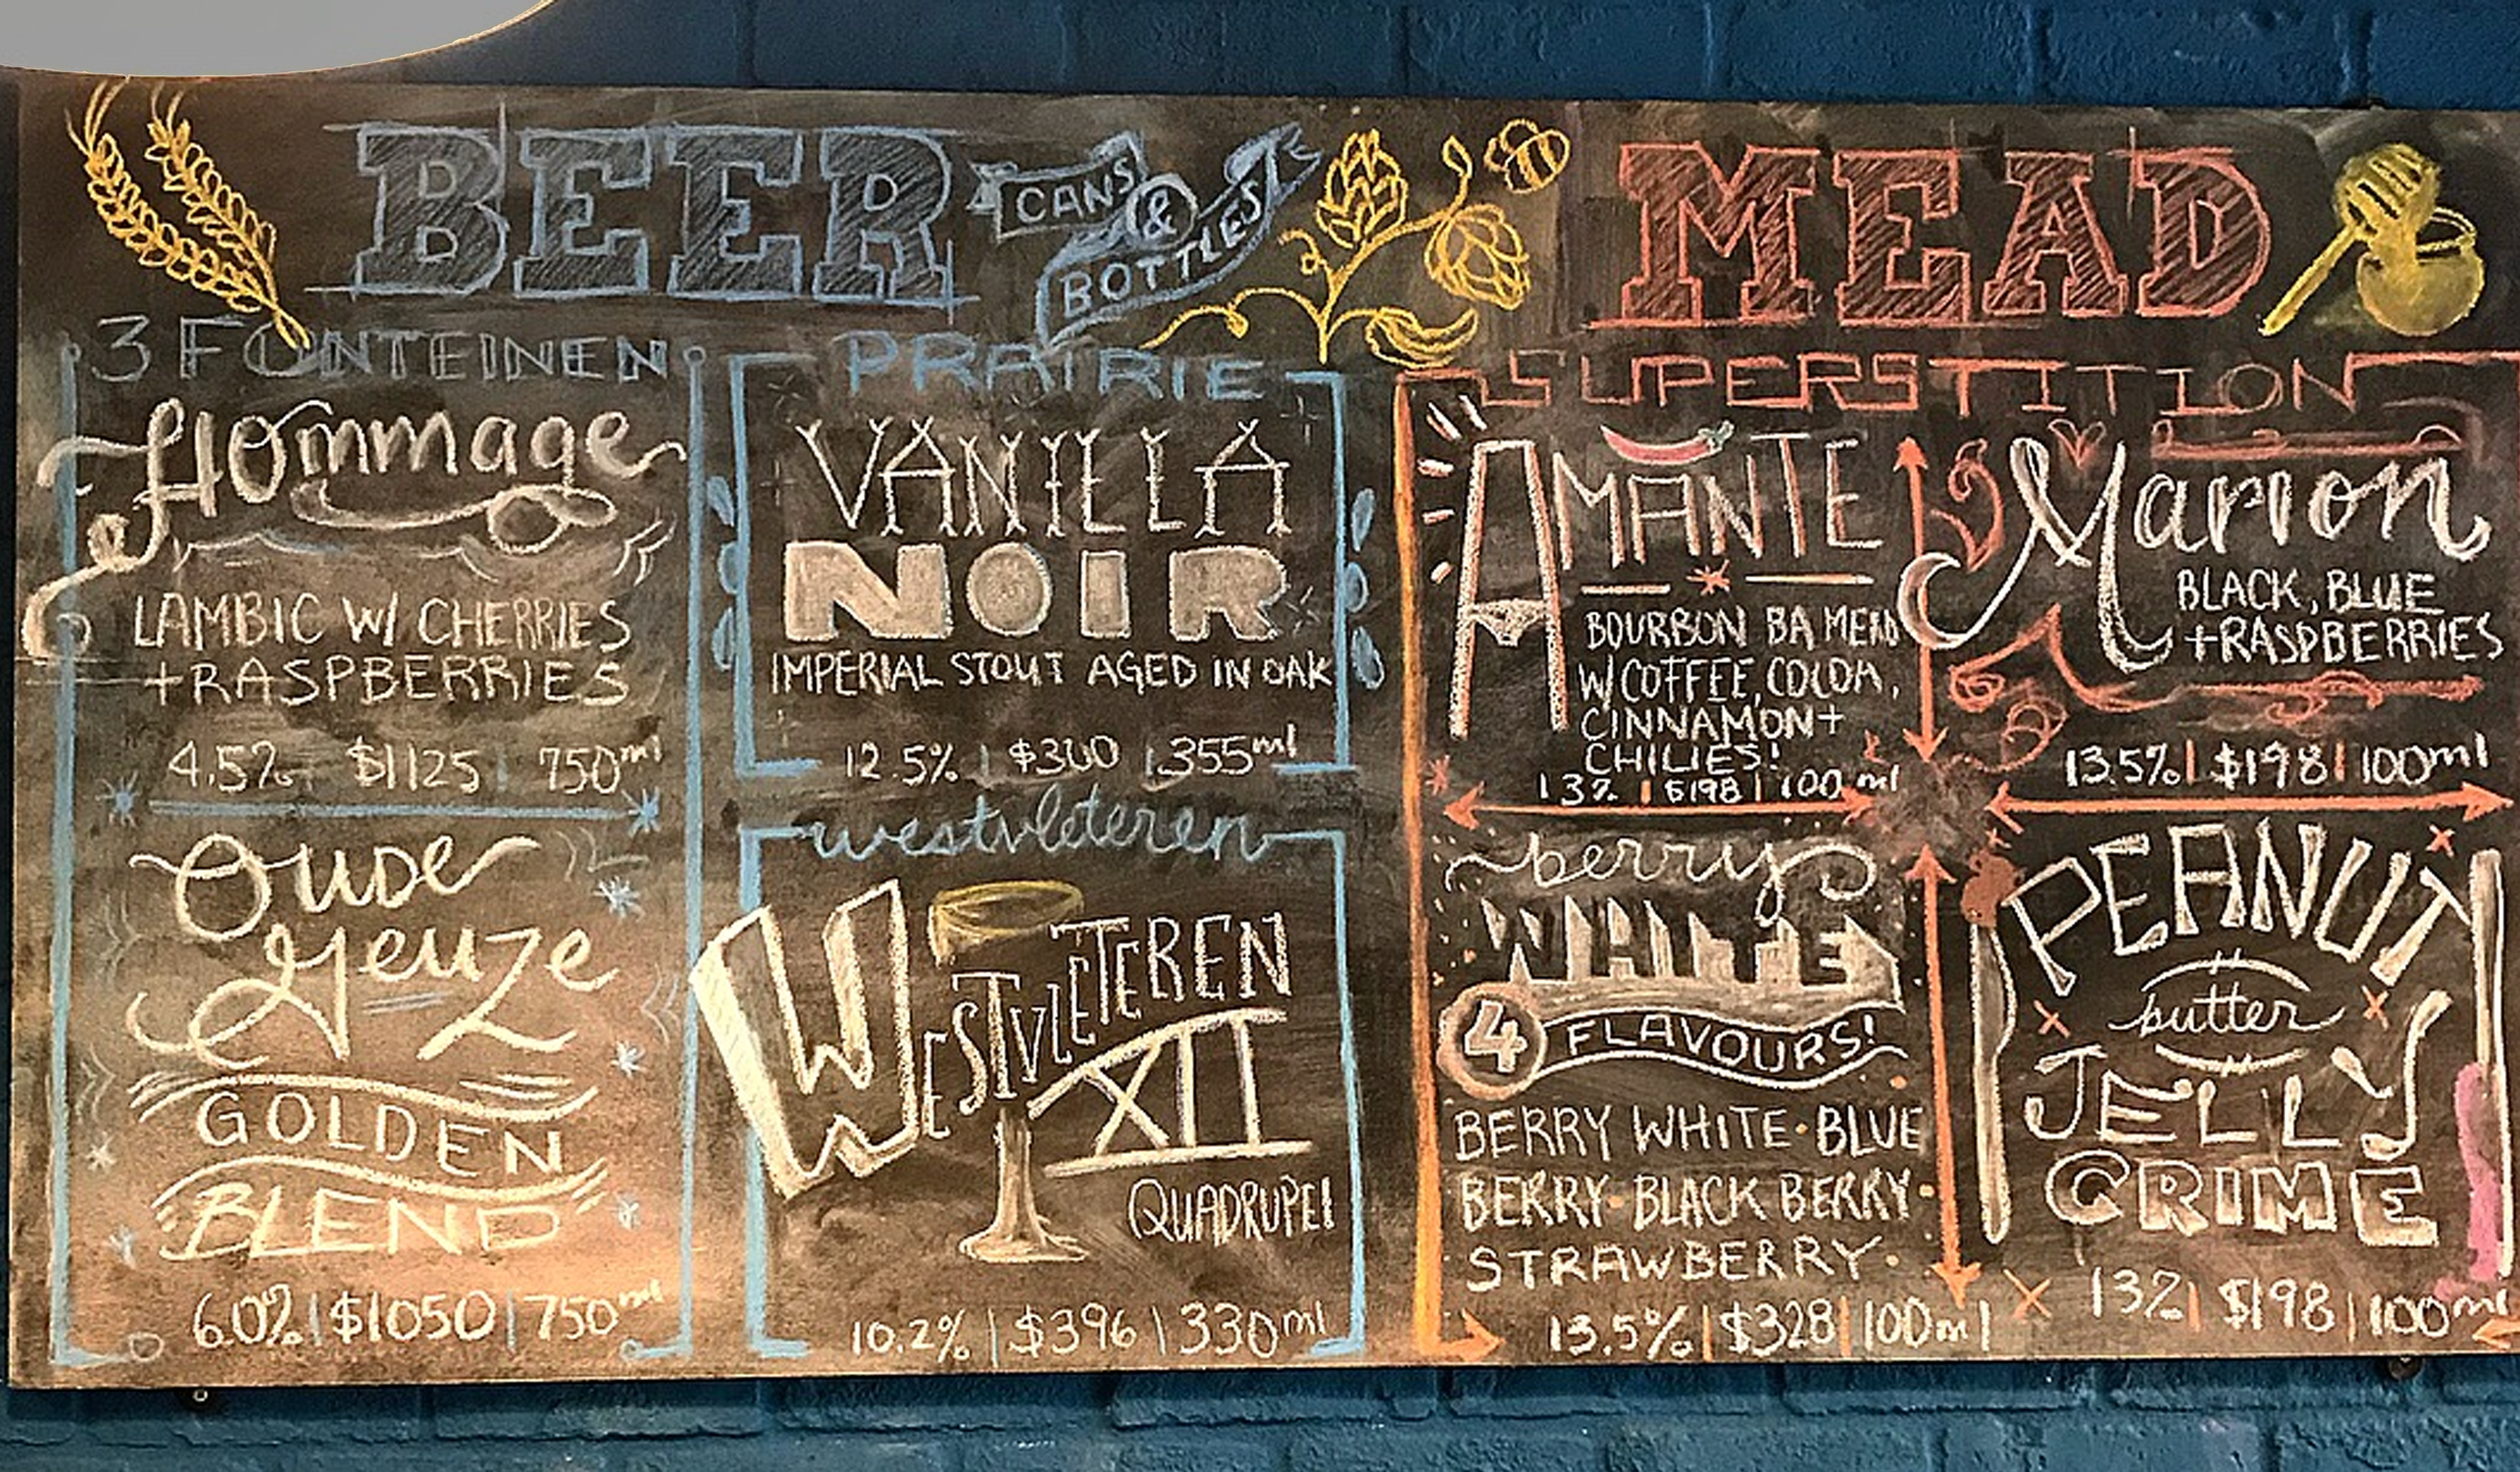 BEER
CANS
&
BOTTLES
3 FONTEINEN
Hommage
LAMBIC W/ CHERRIES
+RASPBERRIES
4.5% $1125 | 750ml
Oude
Geuze
GOLDEN
BLEND
6.0% | $1050 | 750ml
PRAIRIE
VANILLA
NOIR
IMPERIAL STOUT AGED IN OAK
12.5% | $300 | 355ml
westvleteren
WESTVLETEREN
XII
QUADRUPEL
10.2% | $396 | 330ml
MEAD
SUPERSTITION
AMANTE
BOURBON BA MEAD
W/COFFEE, COCOA,
CINNAMON+
CHILIES!
13% | $198 | 100 ml
Marion
BLACK, BLUE
+RASPBERRIES
13.5% | $198 | 100ml
berry
WHITE
4 FLAVOURS!
BERRY WHITE · BLUE
BERRY · BLACK BERRY ·
STRAWBERRY ·
13.5% | $328 | 100ml
PEANUT
butter
JELLY
CRIME
13% | $198 | 100ml